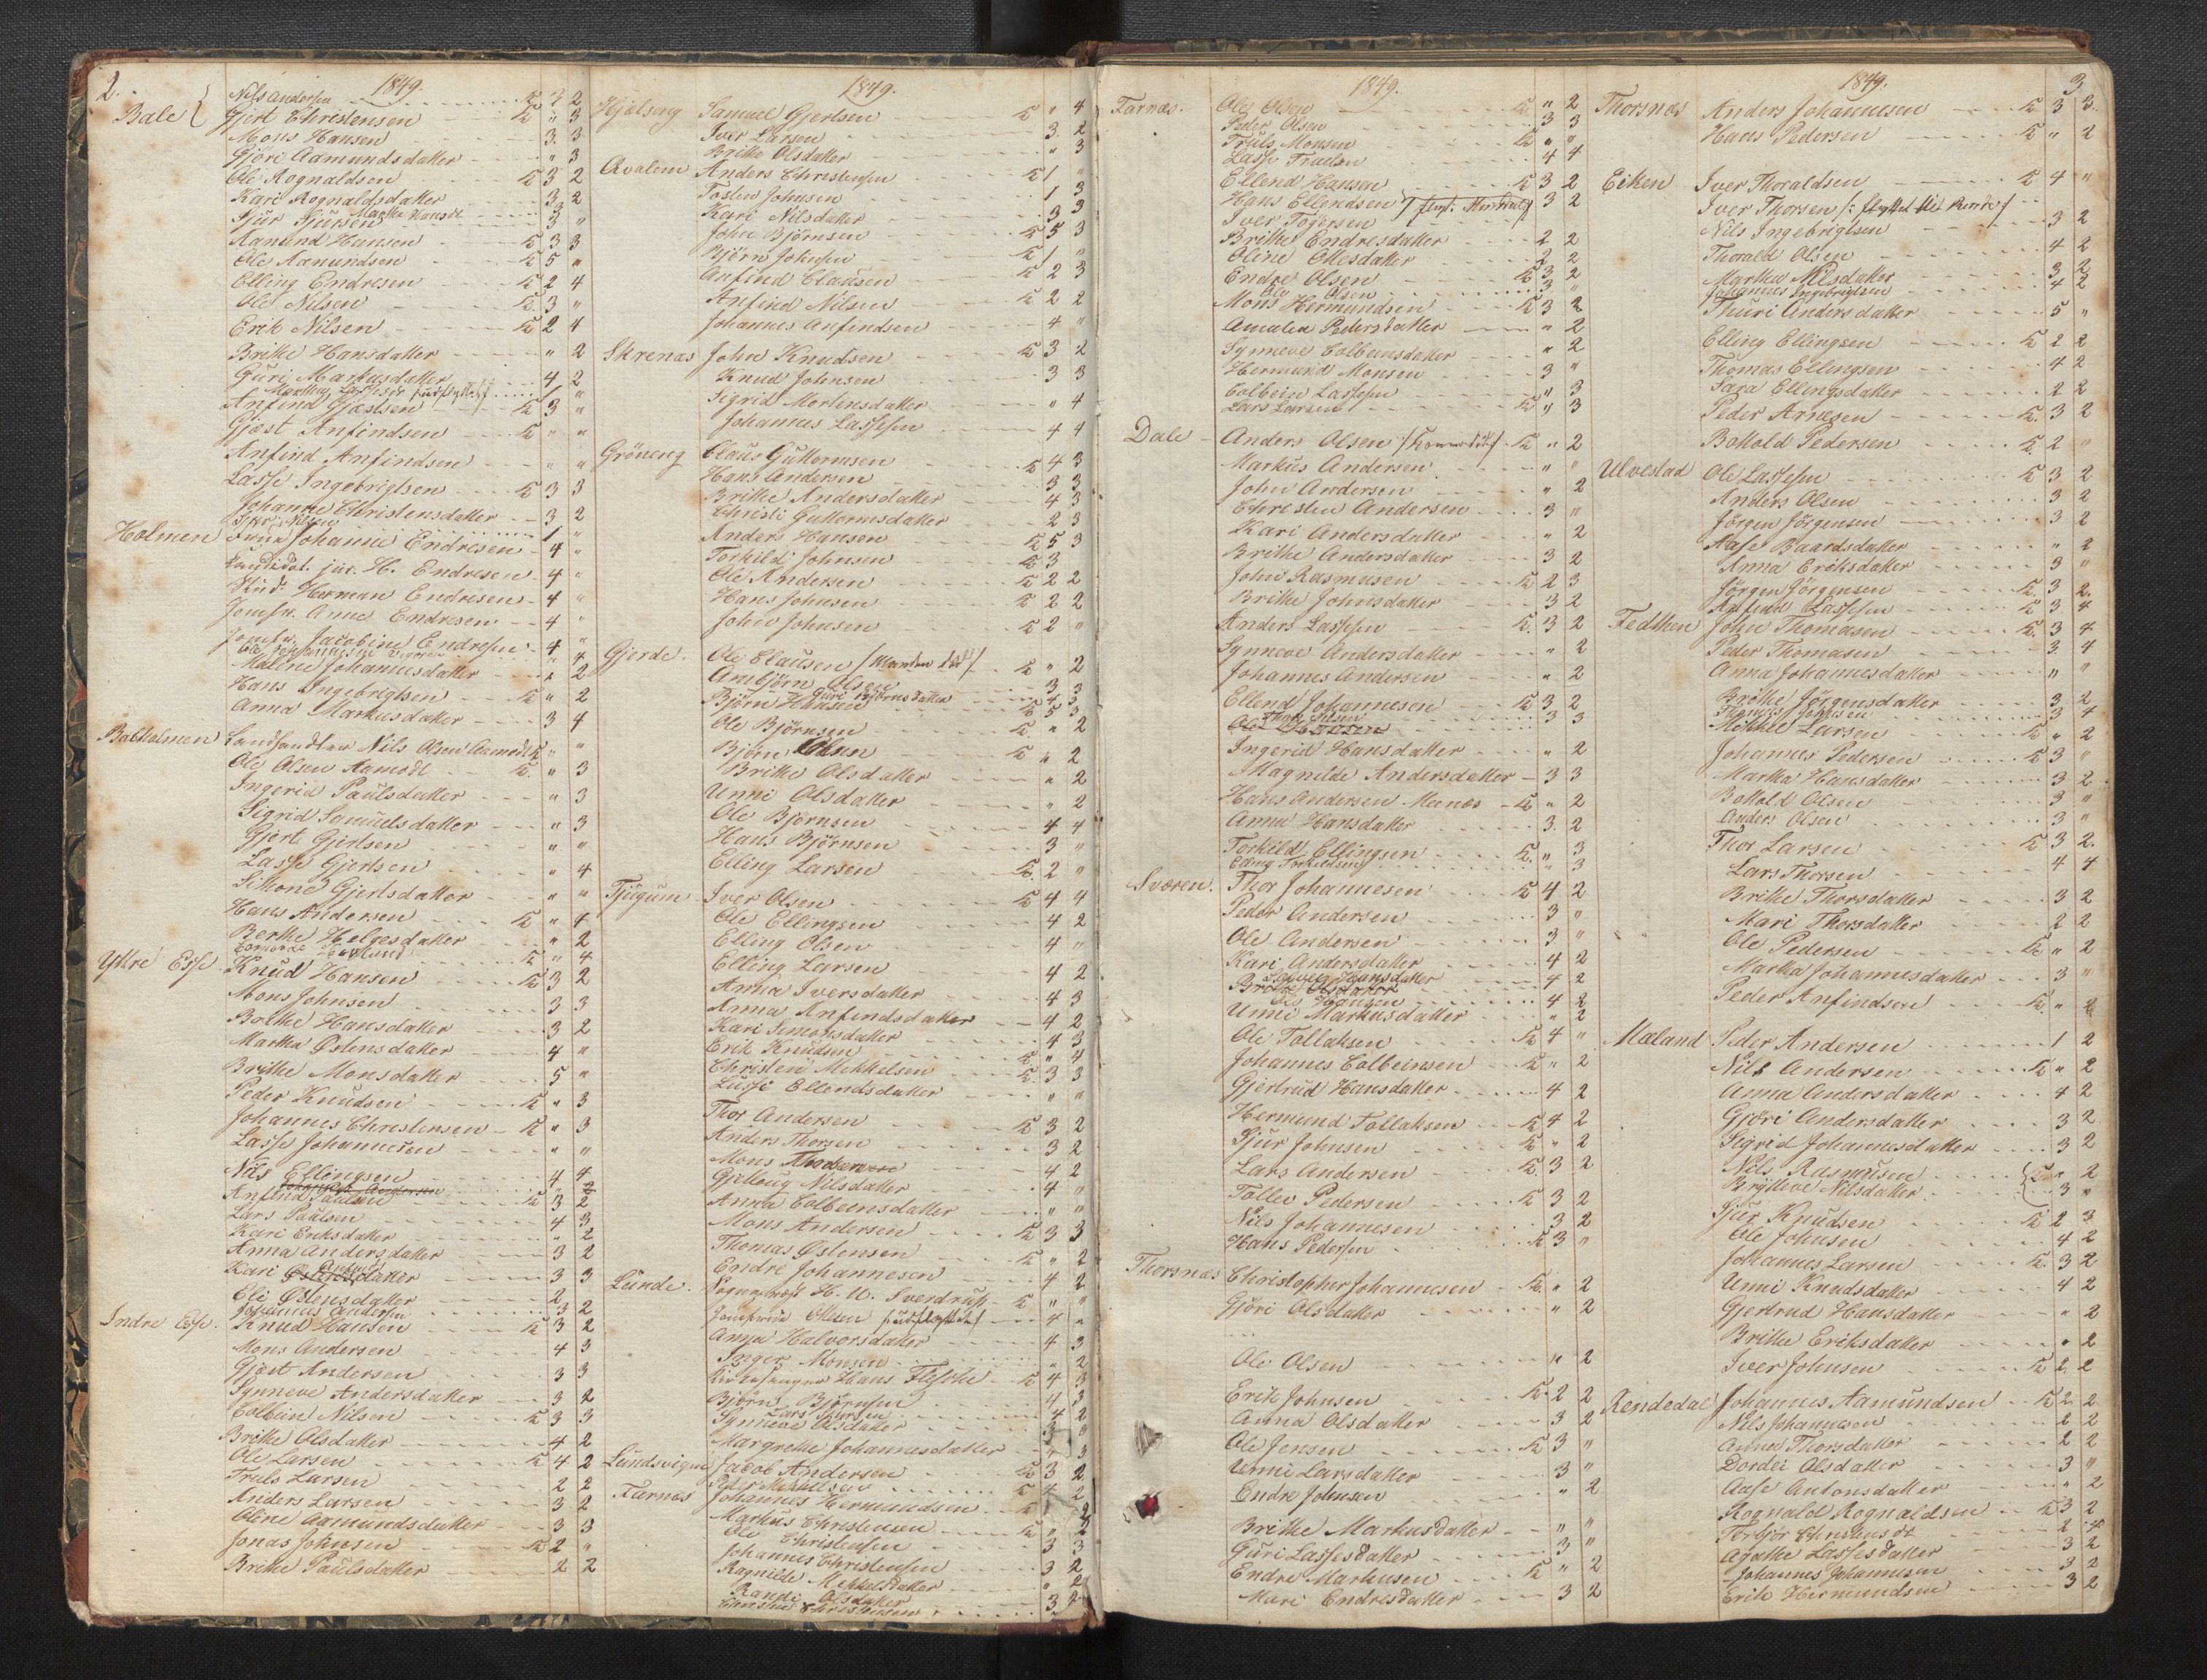 2.
1849.
Nils Andersen 3 2
Bale Gjert Christensen " 3
Mons Hansen 3 3
Gjöri Aamundsdatter " 3
Ole Rognaldsen 3 2
Kari Rognaldsdatter 3 2
Martha Hansdt 3
Sjur Sjursen 3 "
Aamund Hansen 3 3
Ole Aamundsen 5 "
Elling Endresen 2 4
Ole Nilsen 3 "
Erik Nilsen 2 4
Brithe Hansdatter " 2
Guri Markusdatter 4 2
Anfind Gjæstsen 3 "
Gjæst Anfindsen " "
Anfind Anfindsen " "
Lasse Ingebrigtsen 3 3
Johanne Christensdatter 3 2
Holmen Johanne Endresen 4 "
Kandidat. jur. H. Endresen 4 "
Stud: Herman Endresen 4 "
Jomfr. Anne Endresen 4 "
Jomfr. Jacobine Endresen 4 "
Malene Johannesdatter " 2
Hans Ingebrigtsen " 2
Anna Markusdatter 3 4
Balholmen Landhandler Nils Olsen Aamodt " "
Ole Olsen Aamodt " 3
Ingerid Paulsdatter " 3
Sigrid Samuelsdatter " 3
Gjert Gjertsen " "
Lasse Gjertsen " 4
Simone Gjertsdatter " "
Hans Andersen " 4
Berthe Helgesdatter " 2
Yttre Esse Knud Hansen 3 2
Mons Johnsen 3 3
Bothe Hansdatter 3 2
Martha Østensdatter 4 "
Brithe Monsdatter 5 "
Peder Knudsen " 3
Johannes Christensen " 3
Lasse Johannesen " "
Nils Ellingsen 4 4
Anfind Paulsen 3 2
Lars Paulsen 4 3
Kari Eriksdatter " 2
Anna Andersdatter 3 2
Kari Østensdatter 3 3
Eli Østensdatter 2
Johannes Andersen 3 2
Indre Esse. Knud Hansen 3 2
Mons Andersen 4 3
Gjæst Andersen 3 3
Synneve Andersdatter 3 2
Colbein Nilsen 3 3
Brithe Olsdatter 4 2
Ole Larsen 4 2
Truls Larsen 2 2
Anders Larsen 3 2
Oline Aamundsdatter 3 3
Jonas Johnsen 2 "
Brithe Paulsdatter 2 2
1849.
Hjelseng Samuel Gjertsen " 4
Iver Larsen 3 2
Brithe Olsdatter " 3
Qvalem Anders Christensen 1 "
Tosten Johnsen 1 3
Kari Nilsdatter 3 3
John Björnsen 5 3
Björn Johnsen 1 "
Anfind Clausen 2 3
Anfind Nilsen 2 2
Johannes Anfindsen 4 "
Skrenæs John Knudsen 3 2
Knud Johnsen 3 3
Sigrid Mortensdatter " 4
Johannes Lassesen 4 4
Gröneng Claus Guttormsen 4 3
Hans Andersen 3 3
Brithe Andersdatter 4 3
Christi Guttormsdatter 2 3
Anders Hansen 5 3
Torkild Johnsen 3
Ole Andersen 2 2
Hans Johnsen 2 2
John Johnsen 2 "
Gjerde. Ole Clausen /Manden död/ " 2
Arnbjörn Olsen 3 3
Guri Björnsdatter 4 3
Björn Hansen 5 3
Ole Björnsen " 2
Björn Olsen " 2
Brithe Olsdatter " 2
Unni Olsdatter " 2
Ole Björnsen 4 4
Hans Björnsen 3 "
Elling Larsen 2 "
Tjugum Iver Olsen 4 4
Ole Ellingsen 4 2
Elling Olsen 4 "
Elling Larsen 4 2
Anna Iversdatter 4 3
Anna Anfindsdatter 4 2
Kari Simonsdatter 4 3
Erik Knudsen " 4
Christen Mikkelsen 3 3
Lussi Ellendsdatter " "
Thor Andersen 3 2
Anders Thorsen 3 2
Mons Andersen 4 2
Gjellaug Nilsdatter 4 "
Anna Colbeensdatter " "
Mons Andersen 3 3
Thomas Østensen " 2
Endre Johannesen 4 2
Lunde. Sognepræst H. U. Sverdrup " "
Jomfrue Olsen /udflyttet/ 4 "
Anna Halvorsdatter 4 3
Inger Monsen " 2
Kirkesanger Hans Flesche 4 3
Björn Björnsen 4 3
Lars Sjursen 4 2
Synneve Olsdatter 3 "
Margrethe Johannesdatter " 3
Lundsvigen Jacob Andersen 3 2
Peder Mikkelsen 4 2
Farnæs Johannes Hermundsen
Markus Christensen " 2
Ole Christensen 3 3
Johannes Christensen 3 2
Ragnilde Mikkelsdatter " 2
Randi Olsdatter 3 2
Christen Christensen
1849.
Farnæs. Ole Olsen " 2
Peder Olsen 3 3
Truls Monsen " "
Lasse Trulsen 4 4
Ellend Hansen 3 2
Hans Ellendsen 3 2
Iver Togersen
Brithe Endresdatter 2 2
Oline Ottesdatter 2 2
Endre Olsen 3 2
Ole Olsen 3 "
Mons Hermundsen 3 2
Amalia Pedersdatter " 2
Synneve Colbensdatter " 2
Hermund Monsen 3 "
Colbein Lassesen " 3
Lars Larsen " 3
Dale Anders Olsen " 2
Markus Andersen " "
John Andersen " 2
Christen Andersen 3 "
Kari Andersdatter " 2
Brithe Andersdatter 3 2
John Rasmusen 2 3
Brithe Johnsdatter 3 2
Anders Lassesen 3 2
Synneve Andersdatter " 2
Johannes Andersen " 2
Ellend Johannesen 3 2
3 3
Ingerid Hansdatter " 2
Magnilde Andersdatter 3 3
Hans Andersen Menæs " 2
Anna Hansdatter 3. 2
Torkild Ellingsen " 3
Elling Torkildsen " 3
Sværen. Thor Johannesen 4 2
Peder Andersen 3 "
Ole Andersen 3 "
Kari Andersdatter 4 2
Hansdatter 4 2
Ole Hansen 4 2
Unni Markusdatter " 2
Ole Tollaksen 4 "
Johannes Colbeinsen " 2
Gjertrud Hansdatter 4 2
Hermund Tollaksen 4 2
Sjur Johnsen " 2
Lars Andersen 3 2
Tollev Pedersen 3 2
Nils Johannesen 3 2
Hans Pedersen 3 "
Thorsnæs Christopher Johannesen " 2
Gjöri Olsdatter " 2
Ole Olsen " 2
Erik Johnsen 2 2
Anna Olsdatter 3 2
Ole Jensen 3 "
Unni Larsdatter 3 "
Endre Johnsen " 2
Brithe Markusdatter " "
Guri Lassesdatter 3 "
Endre Markusen " 2
Mari Endresdatter 3 2
1849.
3
Thorsnæs Anders Johannesen 3 3.
Hans Pedersen " 2
Eiken Iver Thoraldsen 4 "
Iver Thorsen
Nils Ingebrigtsen 3 2
Thorald Olsen 4 2
Martha Nilsdatter 3 2
Johannes Ingebrigtsen 4 2
Thuri Andersdatter 5 "
Elling Ellingsen 2 2
Thomas Ellingsen 4 2
Sara Ellingsdatter 2 2
Peder Arnesen 3 2
Botold Pedersen 2 "
Ulvestad Ole Lassesen 3 2
Anders Olsen 3 2
Jörgen Jörgensen 3 2
Aase Baardsdatter " 2
Anna Eriksdatter 3 "
Jörgen Jörgensen 3 2.
Anfind Lassesen 3 4
Fedtken John Thomasen 3 4
Peder Thomasen 3. 4
Anna Johannesdatter " "
Brithe Jörgensdatter 3 2
Thomas Johnsen 3 4
Mikkel Larsen " 2
Johannes Pedersen 3 "
Martha Hansdatter 3 2
Botold Olsen 3 "
Anders Olsen 3 "
Thor Larsen 3 2.
Lars Thorsen 4 4
Brithe Thorsdatter 3 2
Mari Thorsdatter 2 2
Ole Pedersen " 2
Martha Johannesdatter 3 "
Peder Anfindsen " 2
Mæland Peder Andersen 1 2
Nils Andersen " 2
Anna Andersdatter 4 2
Gjöri Andersdatter 3 2
Sigrid Johannesdatter 3 2
Nils Rasmusen " 2
Bryteve Nilsdatter 3 "
Sjur Knudsen 2 3
Ole Johnsen 4 2
Johannes Larsen 3 2
Unni Knudsdatter 4 2
Gjertrud Hansdatter " 2
Brithe Eriksdatter " 2
Iver Johnsen 2. 2
Rendedal Johannes Aamundsen 2 2
Nils Johannesen 2 2
Anna Thorsdatter 2 2
Dordei Olsdatter 3 "
Aase Antonsdatter " 2
Rognald Rognaldsen 3 2
Torgjer Christensdt 2 4
Agathe Lassesdatter 3 2
Johannes Johannesen 3 2
Erik Hermundsen 3 2